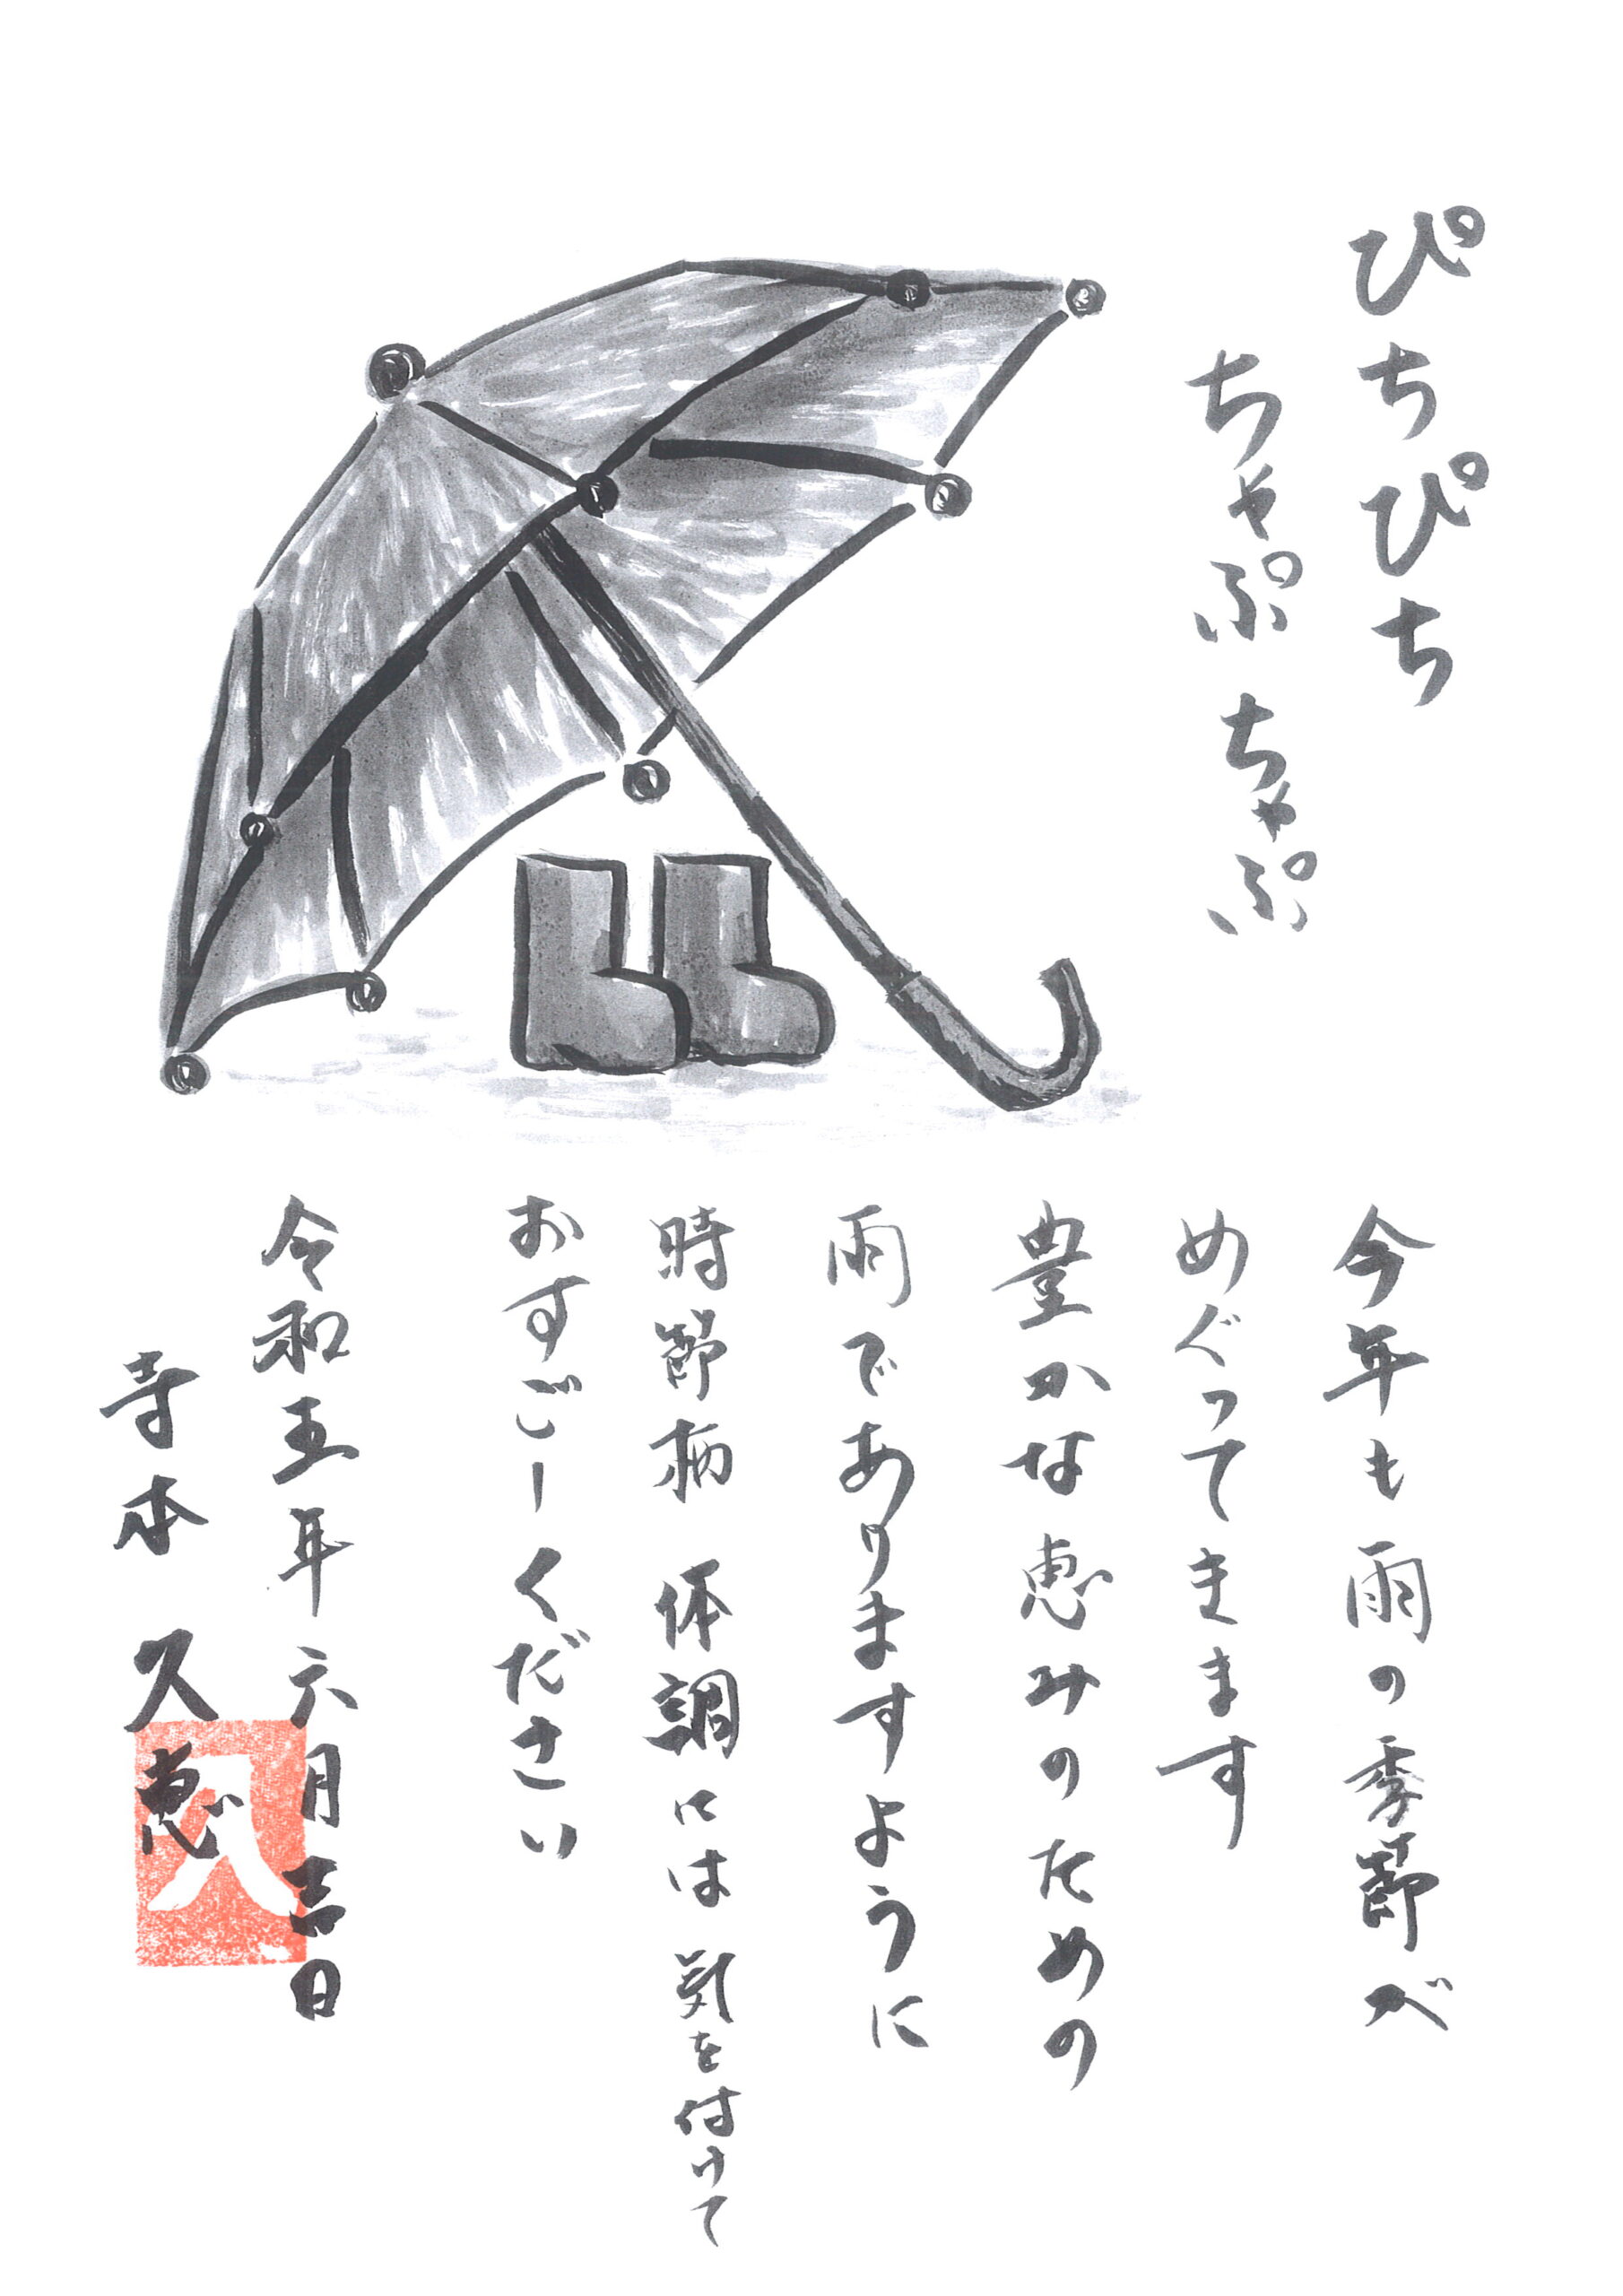 ぴちぴち
ちゃぷちゃぷ
今年も雨の季節が
めぐってきます
豊かな恵みのための
雨でありますように
時節柄 体調には気を付けて
おすごしください
令和五年六月吉日
寺本 久恵
久